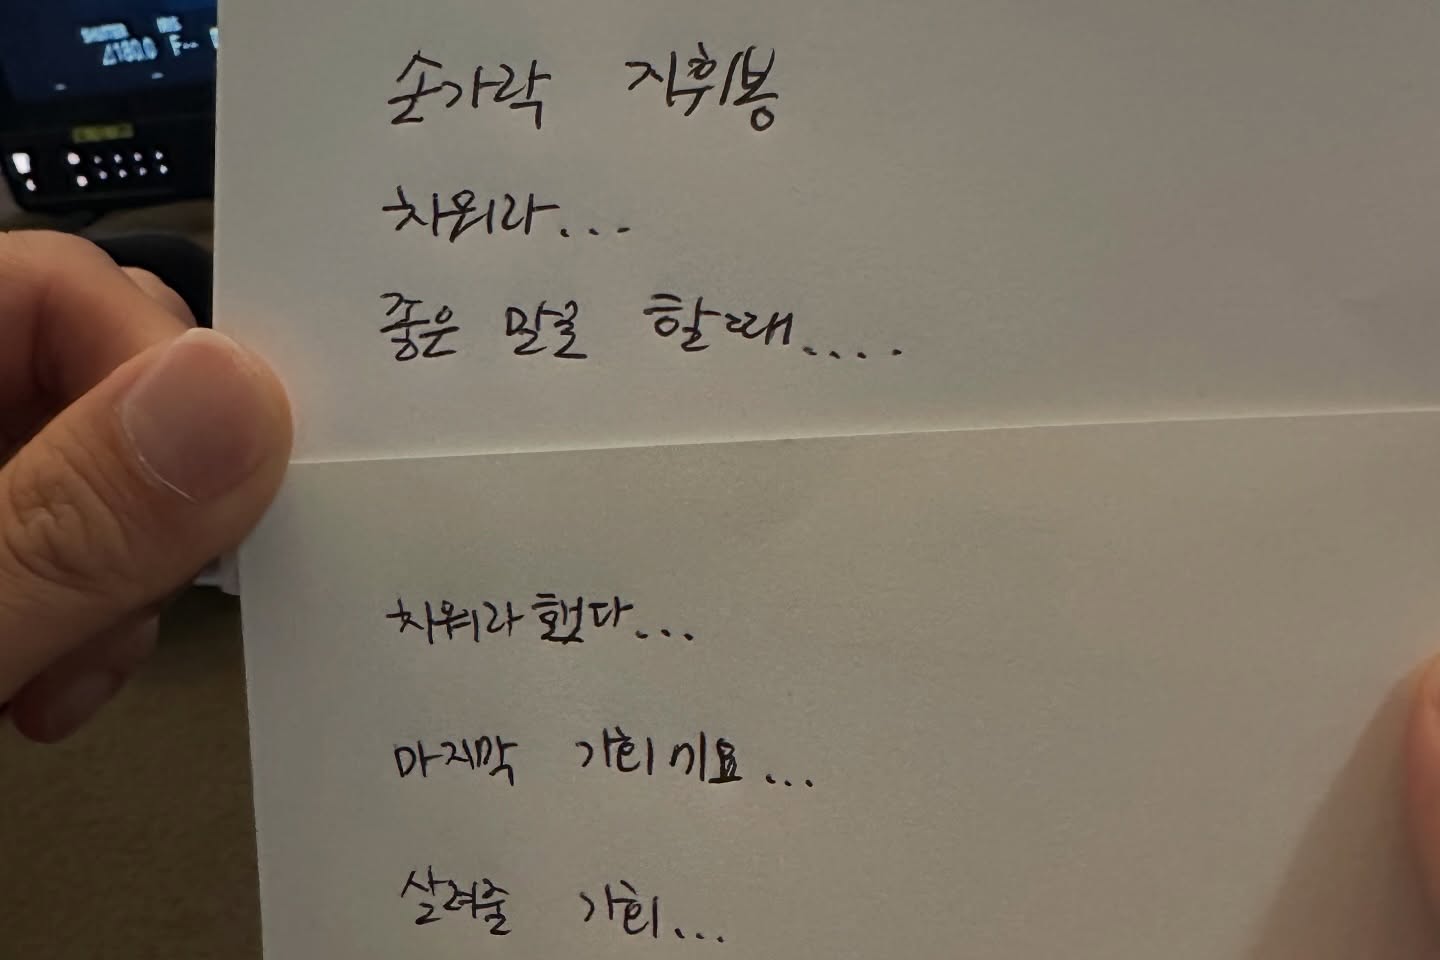 ∠180.0 F--
손가락 지휘봉
치워라...
좋은 말로 할때....
치워라 했다...
마지막 기회 미요...
살려줄 기회...